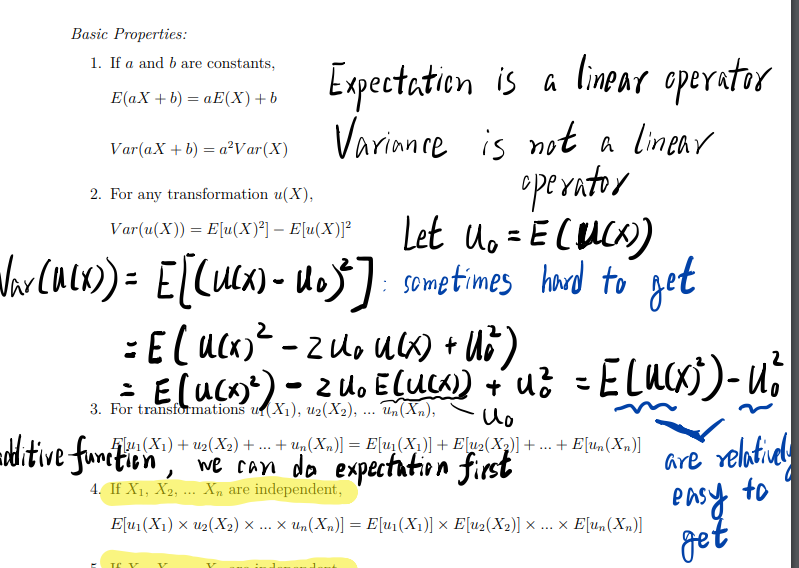 Basic Properties:
1. If a and b are constants,
E(aX + b) = aE(X) + b
Expectation is a linear operator
Var(aX + b) = a²Var(X)
Variance is not a linear
operator
2. For any transformation u(X),
Var(u(X)) = E[u(X)²] − E[u(X)]²
Let u₀ = E(u(X))
Var(u(X)) = E[(u(X) - u₀)²] : sometimes hard to get
= E(u(x)² - 2u₀ u(x) + u₀²)
= E(u(x)²) - 2u₀ E(u(x)) + u₀² = E(u(x)²) - u₀²
u₀
3. For transformations u₁(X₁), u₂(X₂), ... uₙ(Xₙ),
E[u₁(X₁) + u₂(X₂) + ... + uₙ(Xₙ)] = E[u₁(X₁)] + E[u₂(X₂)] + ... + E[uₙ(Xₙ)]
additive function, we can do expectation first
are relatively
easy to
get
4. If X₁, X₂, ... Xₙ are independent,
E[u₁(X₁) × u₂(X₂) × ... × uₙ(Xₙ)] = E[u₁(X₁)] × E[u₂(X₂)] × ... × E[uₙ(Xₙ)]